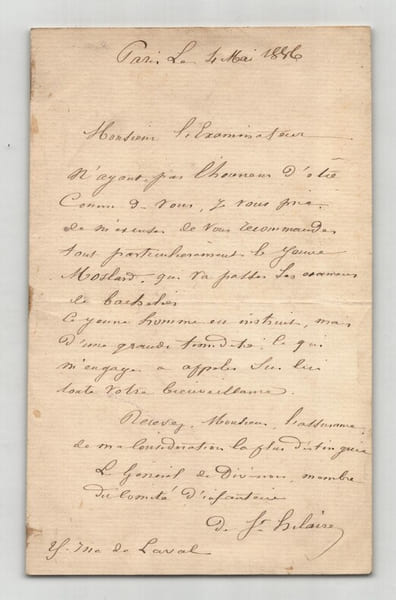 Paris Le 4 Mai 1886
Monsieur l'Examinateur
N'ayant pas l'honneur d'être
Connu de vous, je vous prie
de m'excuser de vous recommander
tout particulièrement le jeune
Moslard, qui va passer ses examens
de bachelier
Ce jeune homme est instruit, mais
d'une grande timidité; ce qui
m'engage a appeler sur lui
toute votre bienveillance.
Recevez, Monsieur, l'assurance
de ma Considération la plus distinguée
Le Général de Division, membre
du Comité d'infanterie
De St. hilaire
rue de Laval